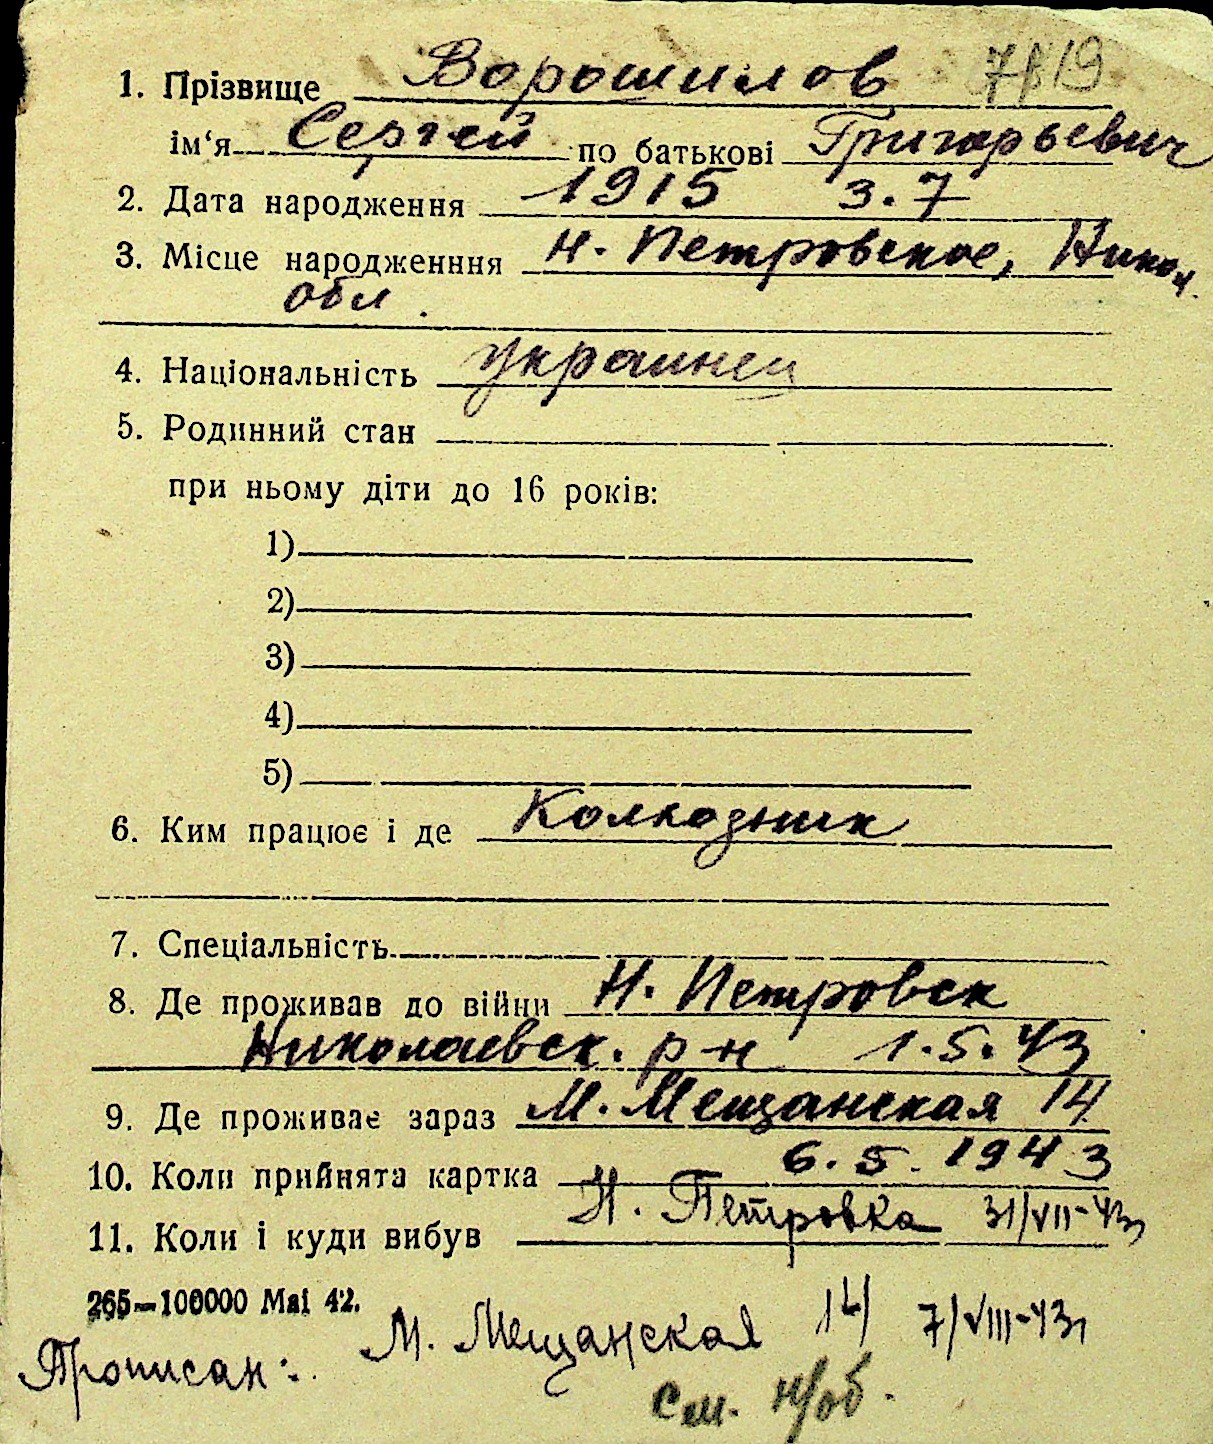 1. Прізвище Ворошилов
ім‘я Сергей по батькові Григорьевич
2. Дата народження 1915 3.7
3. Місце народженння Н. Петровское, Никол.
обл.
4. Національність украинец
5. Родинний стан
при ньому діти до 16 років:
1)
2)
3)
4)
5)
6. Ким працює і де Колхозник
7. Спеціальність
8. Де проживав до війни Н. Петровск
Николаевск. р-н 1.5.43
9. Де проживає зараз М. Мещанская 14
10. Коли прийнята картка 6.5.1943
11. Коли і куди вибув Н. Петровка 31/VII-43
265—100000 Mai 42.
Прописан: М. Мещанская 14 7/VIII-43
См. н/об.